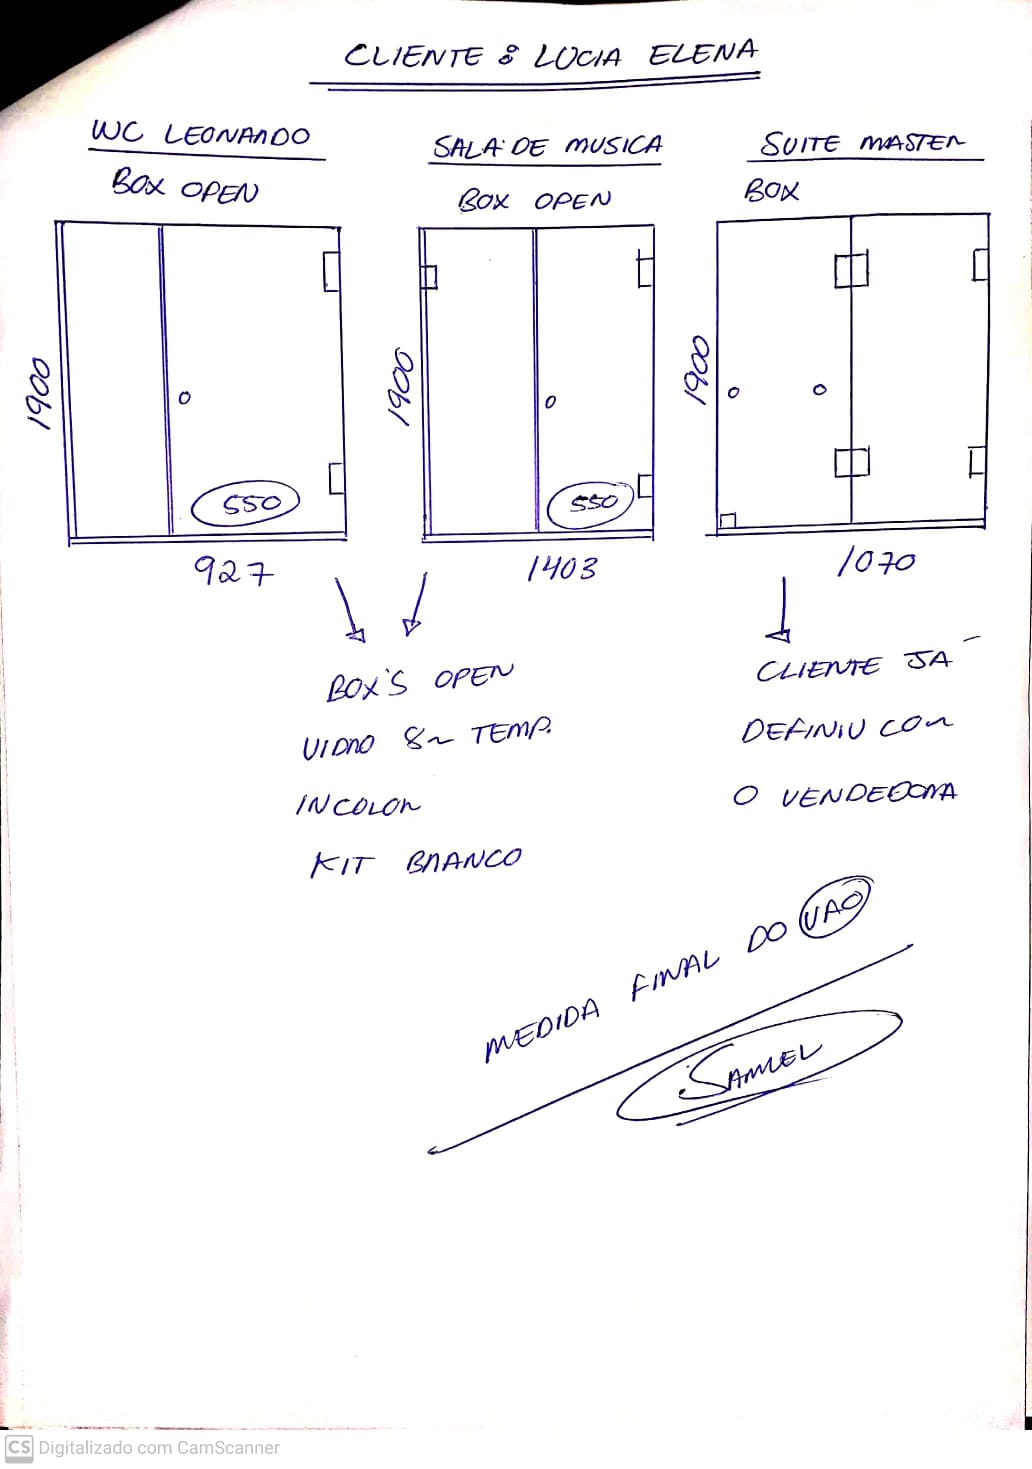 CLIENTE : LUCIA ELENA
WC LEONARDO
BOX OPEN
1900
550
927
SALA DE MUSICA
BOX OPEN
1900
550
1403
SUITE MASTER
BOX
1900
1070
BOX'S OPEN
VIDRO 8m TEMP.
INCOLOR
KIT BRANCO
CLIENTE JÁ
DEFINIU COM
O VENDEDORA
MEDIDA FINAL DO VAO
SAMUEL
CS Digitalizado com CamScanner